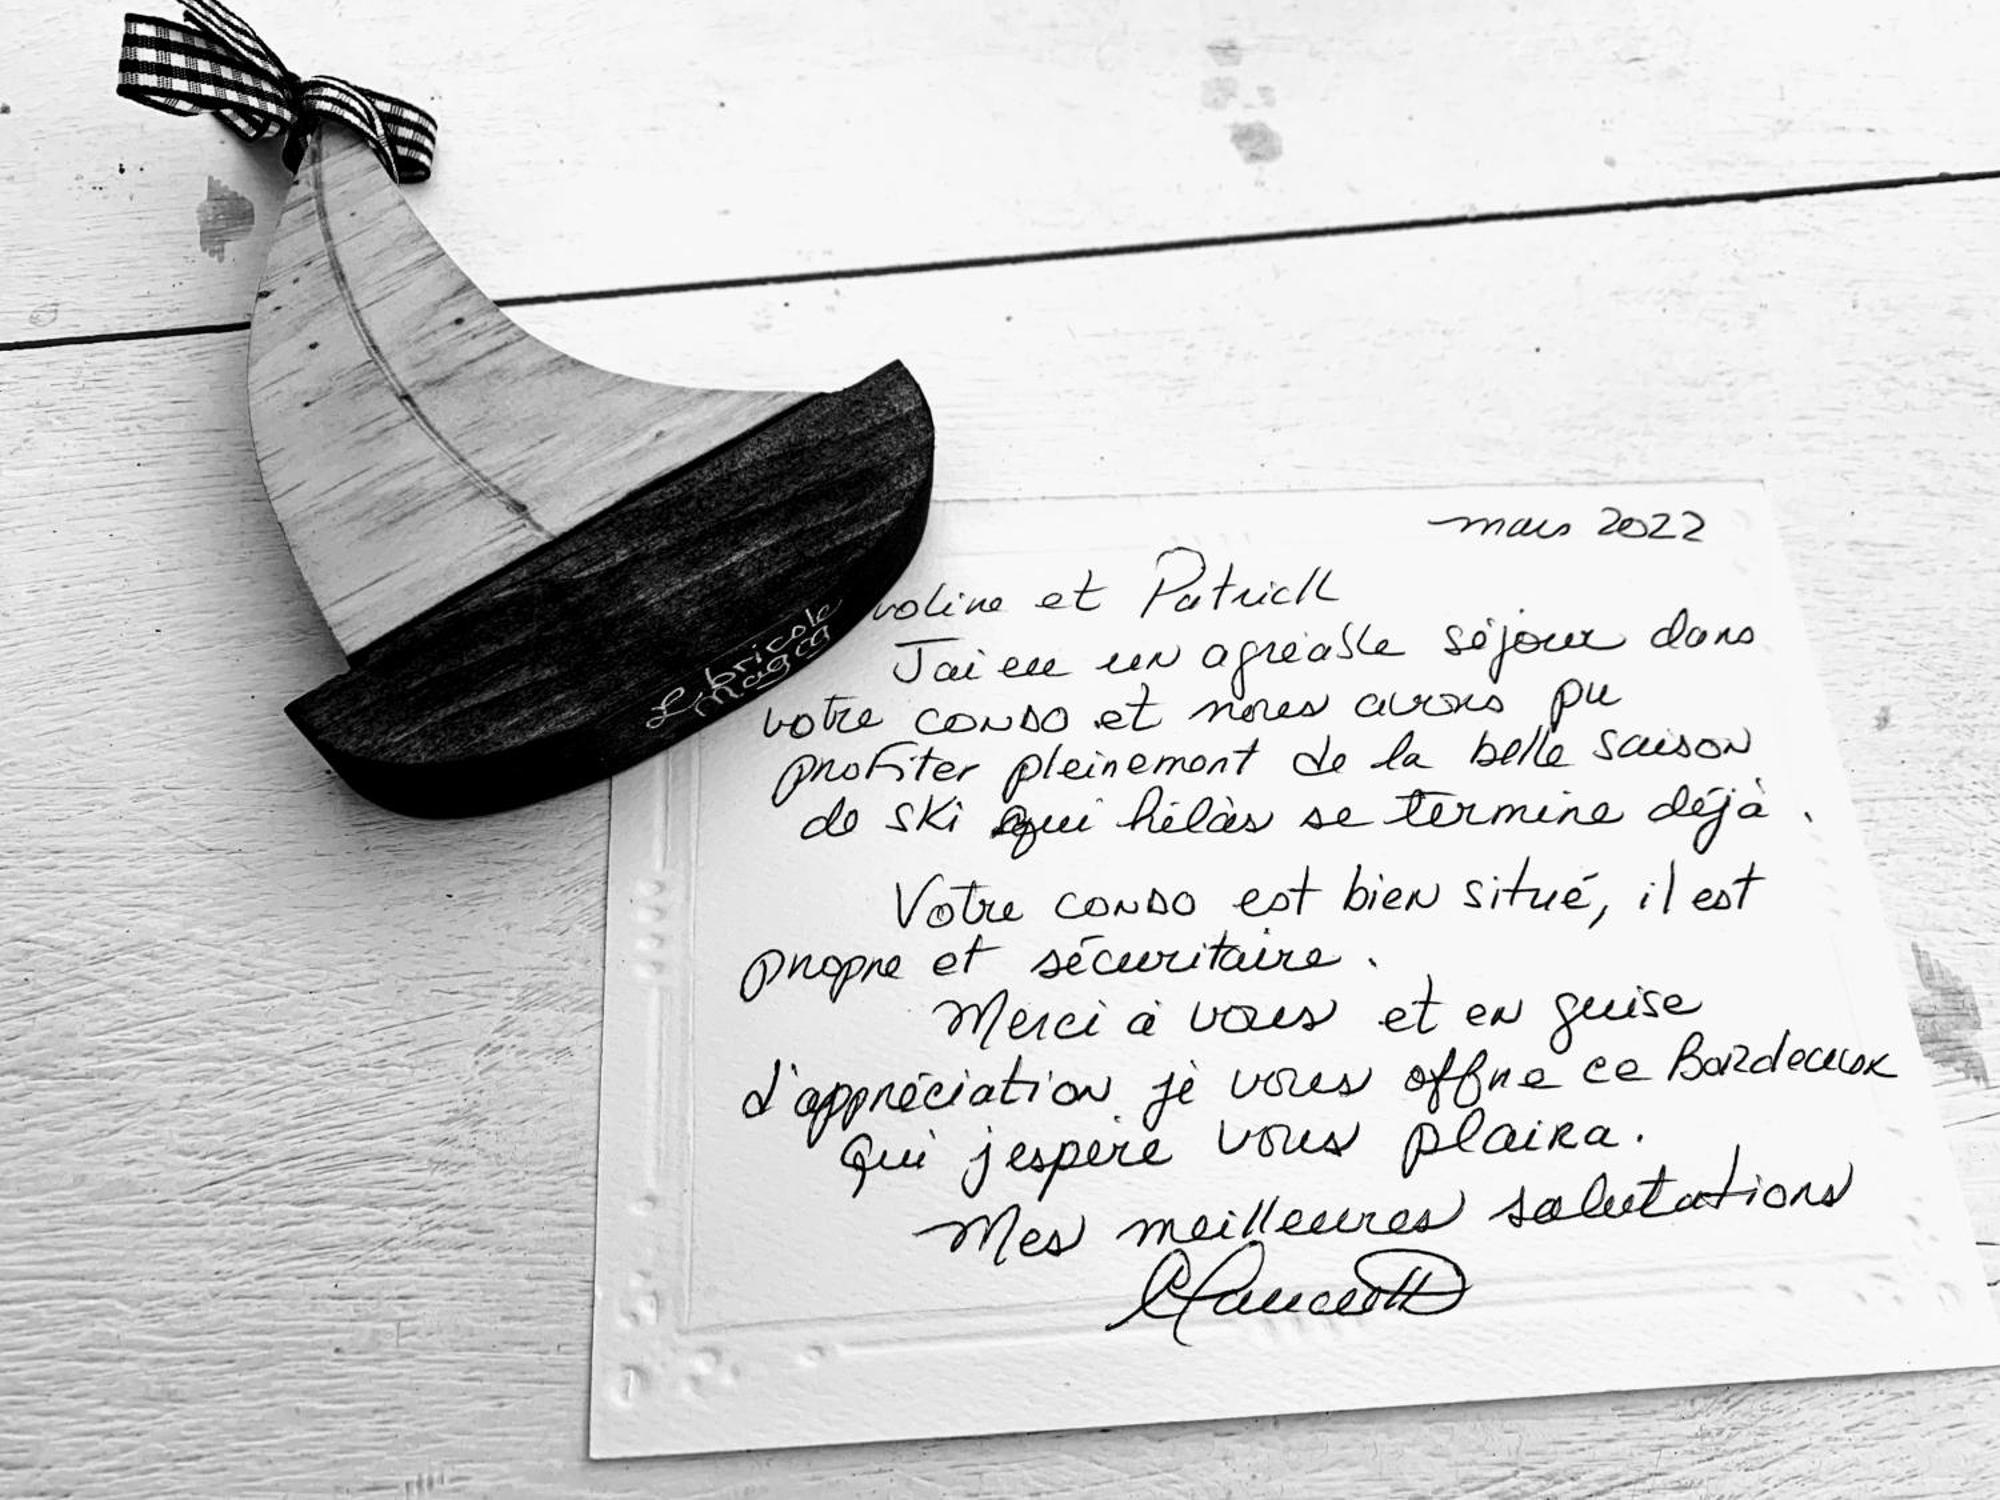 Le bricole
Magog
mars 2022
roline et Patrick
J'ai eu un agréable séjour dans
votre condo et nous avons pu
profiter pleinement de la belle saison
de ski qui hélàs se termine déjà.
Votre condo est bien situé, il est
propre et sécuritaire.
Merci à vous et en guise
d'appréciation je vous offre ce Bordeaux
qui j'espère vous plaira.
Mes meilleures salutations